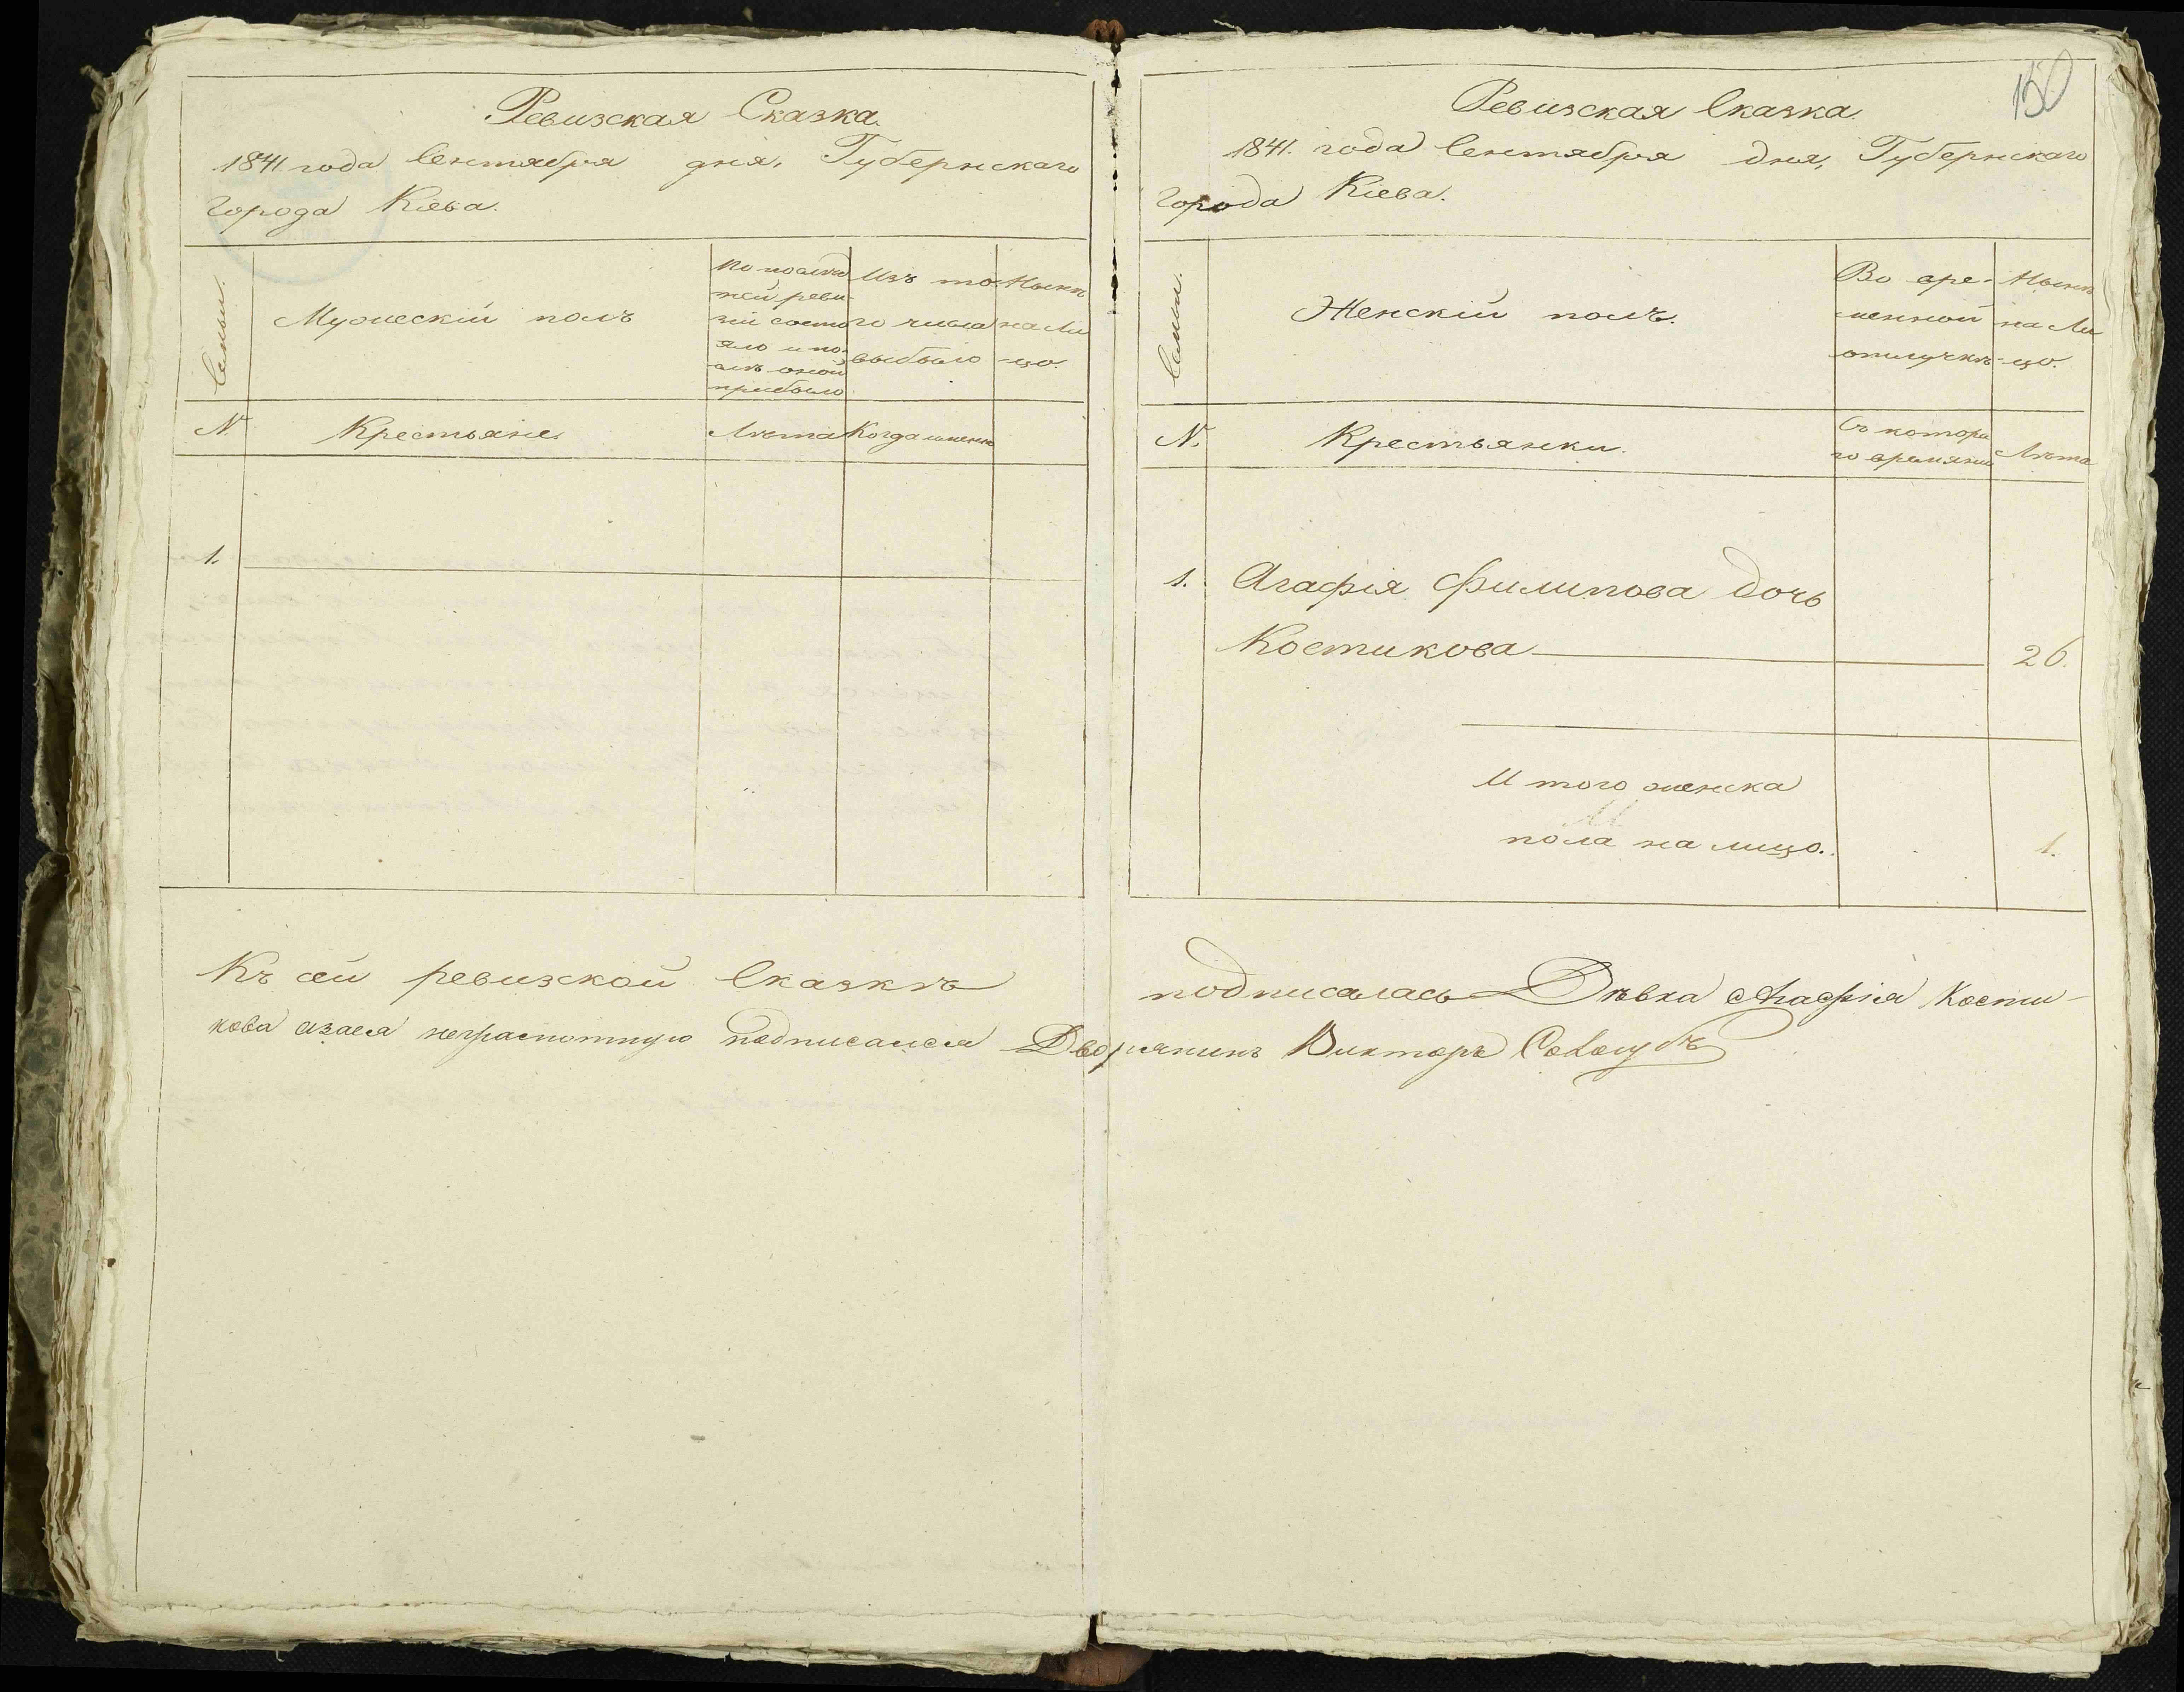 Ревизская Сказка.
1841 года Сентября дня, Губернскаго
города Кіева.
Семьи.
Мужескій полъ
По послѣд
ней реви-
зіи состо
яло и по-
слѣ оной
прибыло
Изъ то-
го числа
выбыло
Нынѣ
на Ли
-цо.
№
Крестьяне.
Лѣта
Когда именно
1.
150
Ревизская Сказка
1841. года Сентября дня, Губернскаго
города Кіева.
Семьи.
Женскій полъ.
Во вре-
менной
отлучкѣ
Нынѣ
на Ли
-цо.
№
Крестьянки.
Съ котора
го времяни
Лѣта
1. Агафія Филипова дочь
Костикова 26.
И того женска
пола на лицо. 1.
Къ сей ревизской Сказкѣ подписалась Дѣвка Агафія Кости-
кова азася неграмотную подписался Дворянинъ Викторъ Сологубъ